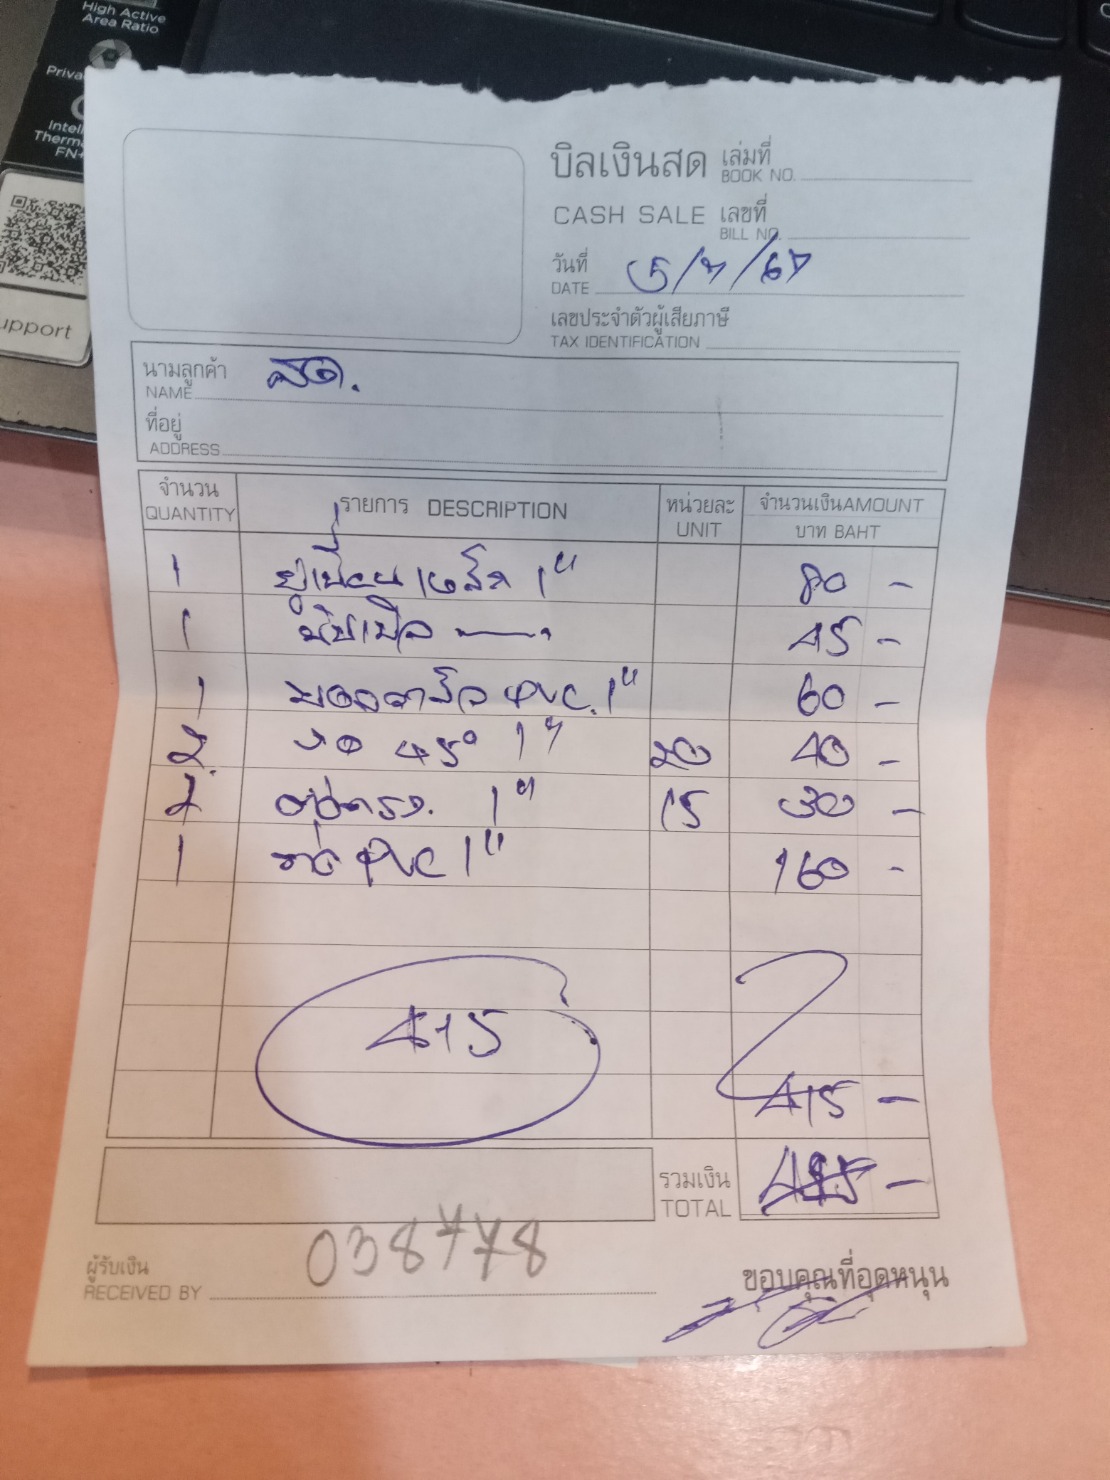 High Active
Area Ratio
upport
บิลเงินสด เล่มที่
BOOK NO.
CASH SALE เลขที่
BILL NO.
วันที่
DATE 5/7/67
เลขประจำตัวผู้เสียภาษี
TAX IDENTIFICATION
นามลูกค้า สด.
NAME
ที่อยู่
ADDRESS
จำนวน รายการ DESCRIPTION หน่วยละ จำนวนเงิน AMOUNT
QUANTITY UNIT บาท BAHT
1 ยูเนี่ยนเหล็ก 1" 80 -
1 นิปเปิล 45 -
1 PVC. 1" 60 -
2 งอ 45° 1" 20 40 -
2 ต่อตรง. 1" 15 30 -
1 ท่อ PVC 1" 160 -
415
415 -
รวมเงิน
TOTAL
038778
ผู้รับเงิน
RECEIVED BY
ขอบคุณที่อุดหนุน